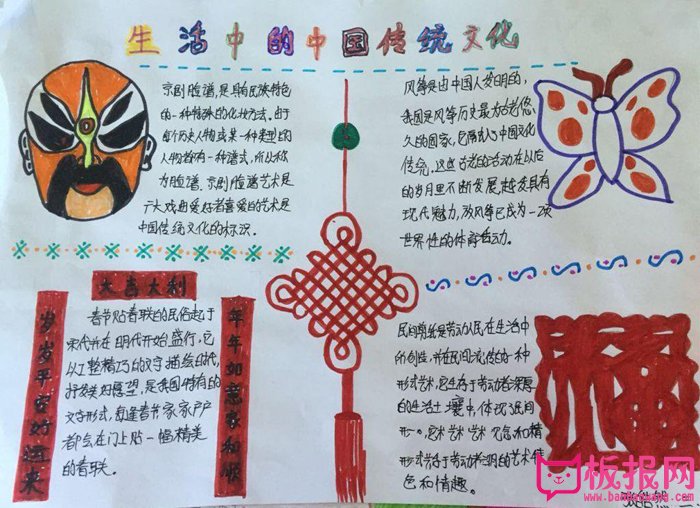 生活中的中国传统文化
京剧脸谱,是具有民族特色
的一种特殊的化妆方法。由于
每个历史人物或某一种类型的
人物都有一种谱式,所以称
为脸谱。京剧脸谱艺术是
广大戏曲爱好者喜爱的艺术是
中国传统文化的标识。
风筝是由中国人发明的,
我国是风筝历史最为古老悠
久的国家,它融入了中国文化
传统,这些古老的活动在以后
的岁月里不断发展,越发具有
现代魅力,放风筝已成为一项
世界性的体育活动。
大喜大利
岁岁平安好运来
年年如意家和顺
春节贴春联的民俗起于
宋代并在明代开始盛行,它
以工整精巧的文字描绘时代,
抒发美好愿望,是我国特有的
文字形式,每逢春节家家户户
都会在门上贴一幅精美
的春联。
民间剪纸是劳动人民在生活中
所创造,并在民间流传的一种
形式艺术,它生存于劳动者深厚
的生活土壤中,体现了民间
艺术
和精
于劳动者
的艺术特
色和情趣。
福
板报网
www.banbaowang.com